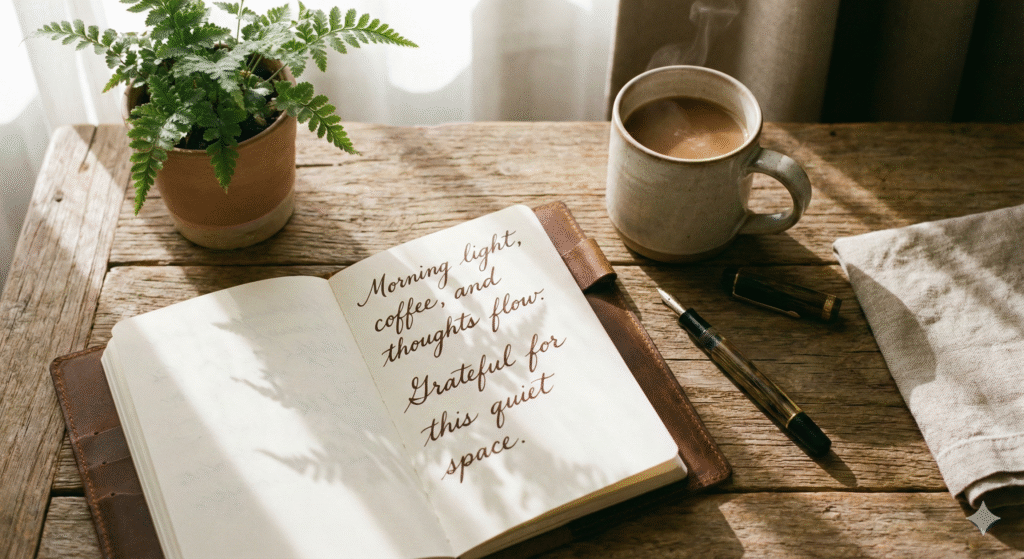 Morning light,
coffee, and
thoughts flow.
Grateful for
this quiet
space.